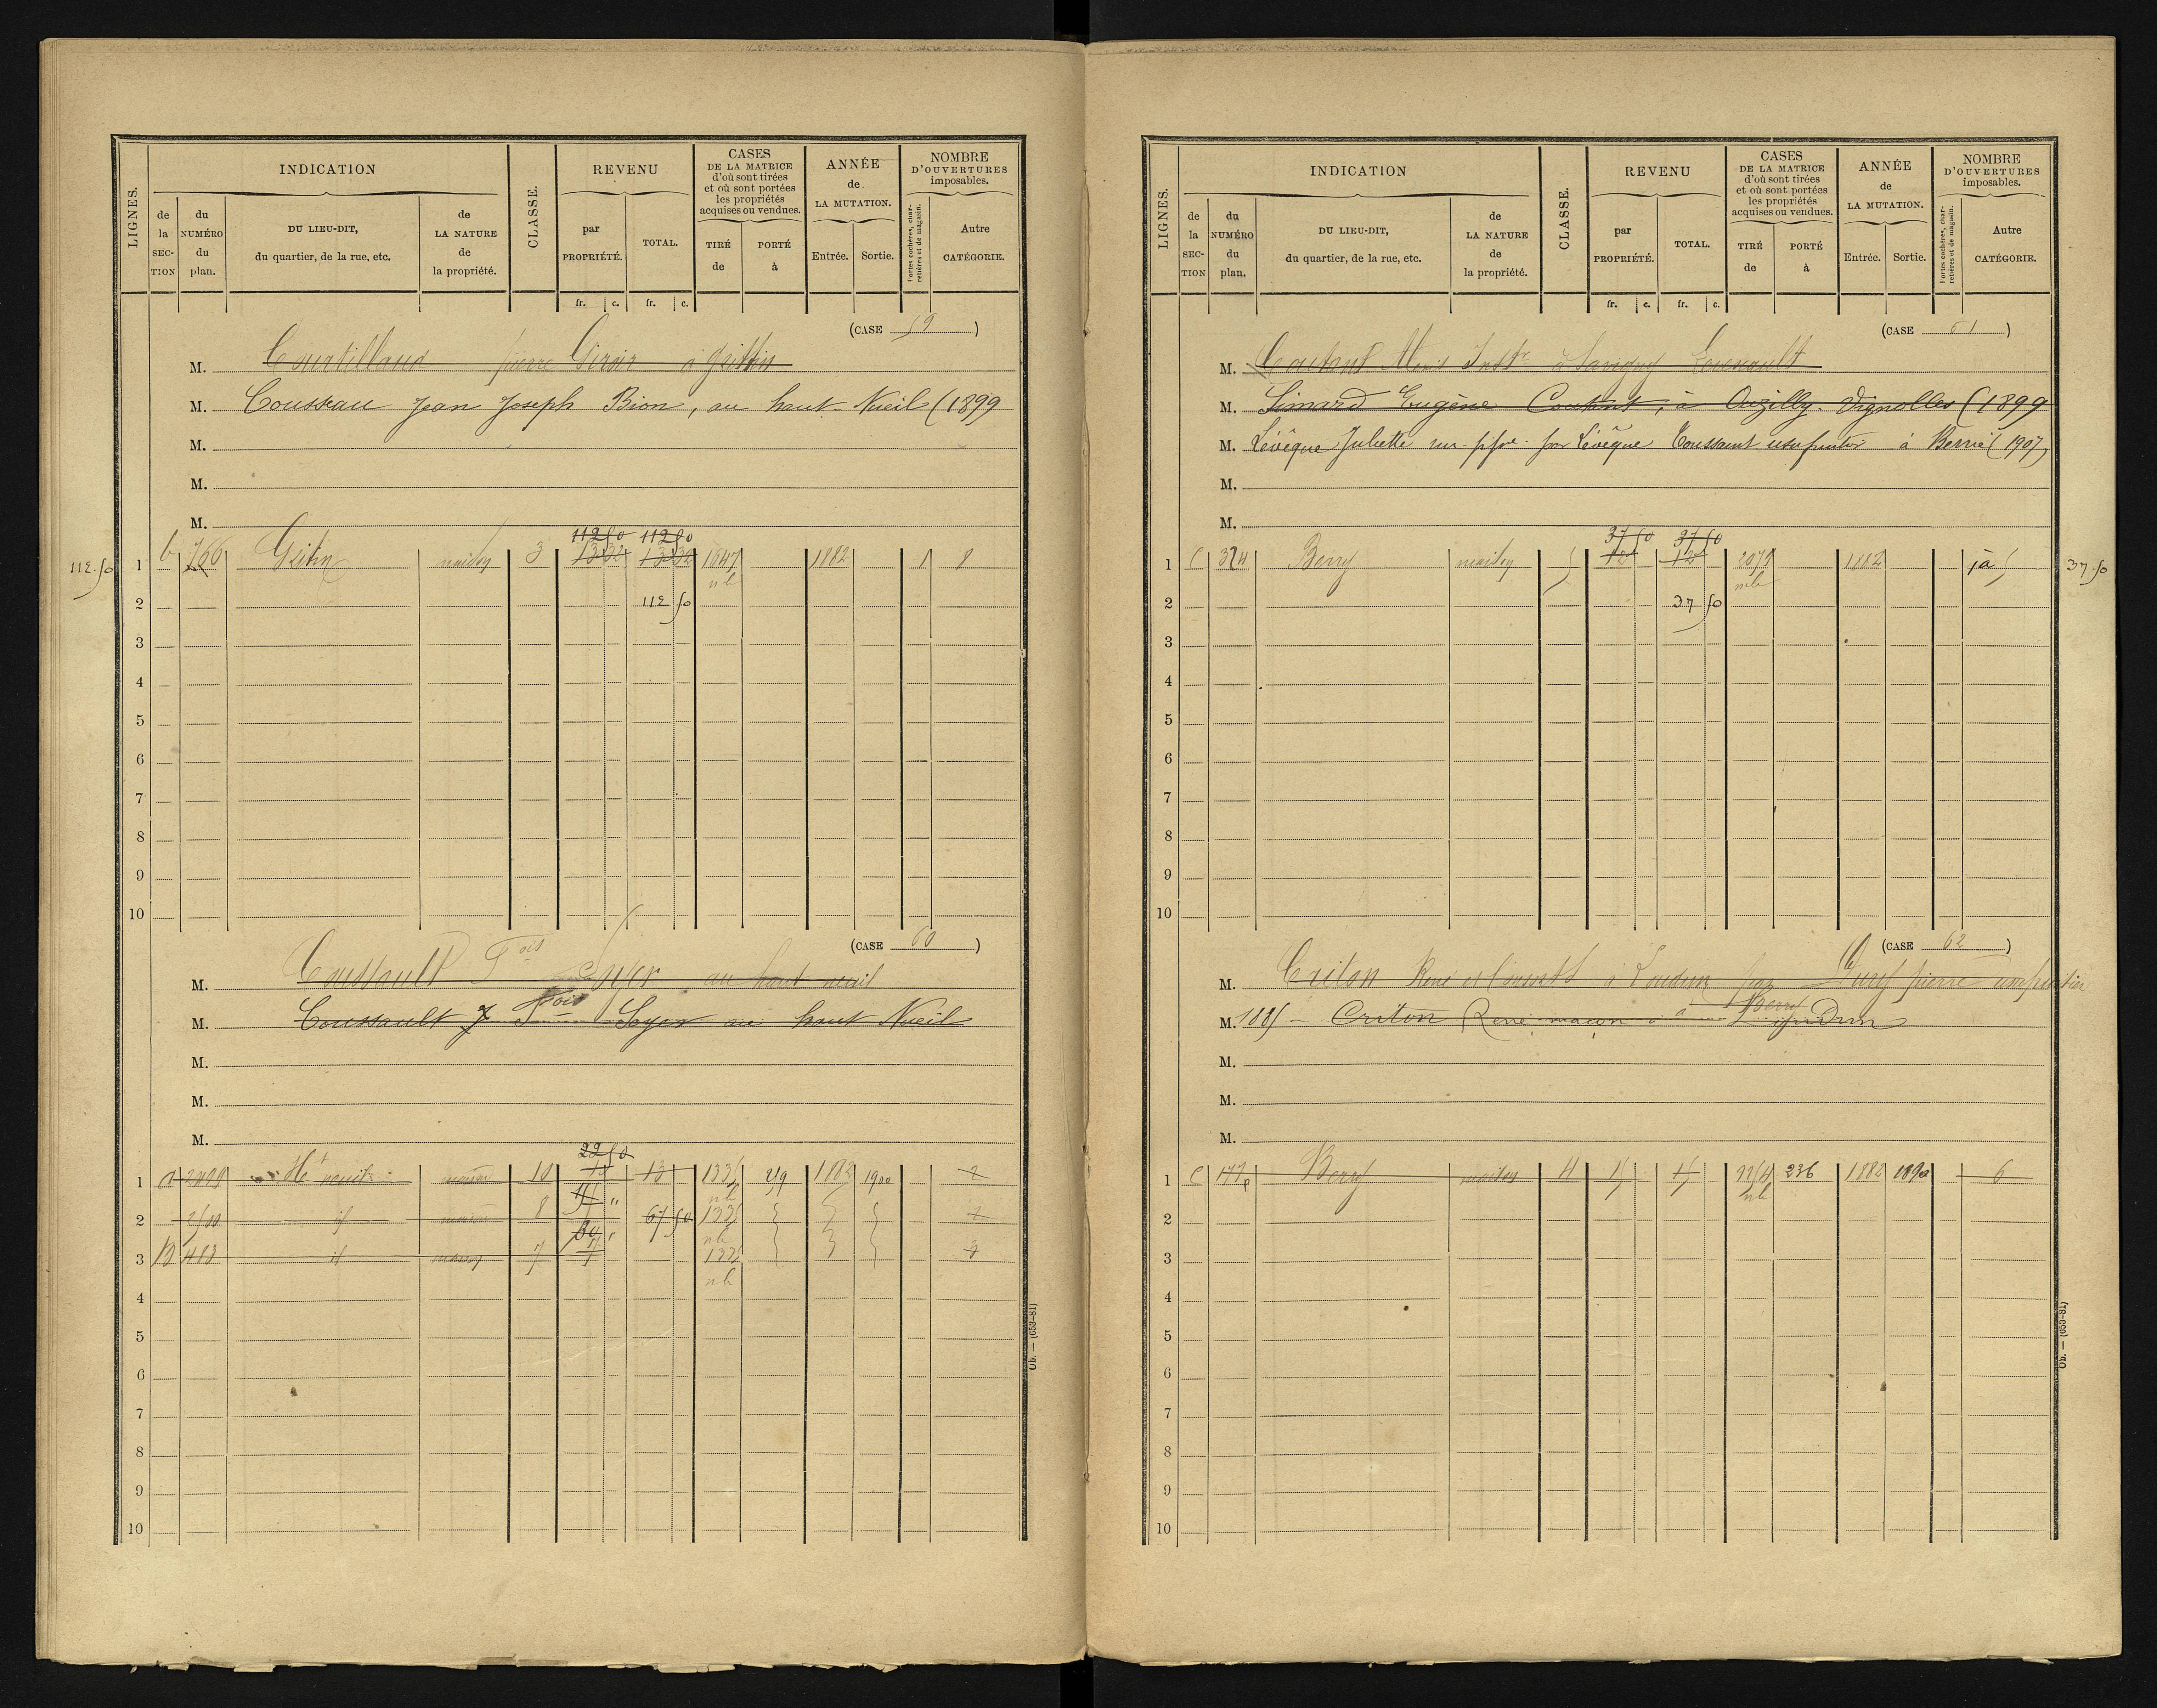 LIGNES.
INDICATION
de la SEC-TION
du NUMÉRO du plan.
DU LIEU-DIT, du quartier, de la rue, etc.
de LA NATURE de la propriété.
CLASSE.
REVENU
par PROPRIÉTÉ.
TOTAL.
fr. c. fr. c.
CASES DE LA MATRICE d'où sont tirées et où sont portées les propriétés acquises ou vendues.
TIRÉ de
PORTÉ à
ANNÉE de LA MUTATION.
Entrée. Sortie.
NOMBRE D'OUVERTURES imposables.
Portes cochères, charretières et de magasin.
Autre CATÉGORIE.
(CASE 59)
M. Courtillaud pierre Giroir à
M. Cousseau Jean Joseph Bion, au haut-Nueil (1899
M.
M.
M.
112 50 112 50
112.50 1 b 766 maison 3 13 32 13 32 1047 1882 1 8
nb
2 112 50
3
4
5
6
7
8
9
10
(CASE 60)
M. Coussault Fois Soyer au haut nueil
M. Coussault Fois Soyer au haut Nueil
M.
M.
M.
22 50
1 a 2499 Ht nueil maison 10 12 13 1335 219 1882 1900 2
nb
2 2500 id maison 8 67 50 1335 2
nb
3 B 483 id maison 7 1335
nb
4
5
6
7
8
9
10
Ob. — (653-81)
LIGNES.
INDICATION
de la SEC-TION
du NUMÉRO du plan.
DU LIEU-DIT, du quartier, de la rue, etc.
de LA NATURE de la propriété.
CLASSE.
REVENU
par PROPRIÉTÉ.
TOTAL.
fr. c. fr. c.
CASES DE LA MATRICE d'où sont tirées et où sont portées les propriétés acquises ou vendues.
TIRÉ de
PORTÉ à
ANNÉE de LA MUTATION.
Entrée. Sortie.
NOMBRE D'OUVERTURES imposables.
Portes cochères, charretières et de magasin.
Autre CATÉGORIE.
(CASE 61)
M. Coutant Instr à Savigny
M. Simard Eugène Coutant, à Ouzilly-Vignolles (1899
M. Lévêque Juliette nu-ppre par Lévêque Toussaint usufruitier à Berrie (1907)
M.
M.
37 50 37 50
1 C 374 Berry maison 5 12 12 2071 1882 5 37.50
nb
2 37 50
3
4
5
6
7
8
9
10
(CASE 62)
M. Criton René à Loudun par pierre usufruitier
M. 1885 – Criton René maçon à Loudun
à Berry
M.
M.
M.
1 C 177p Berry maison 4 15 15 236 1882 1892 6
nb
2
3
4
5
6
7
8
9
10
Ob. — (653-81)